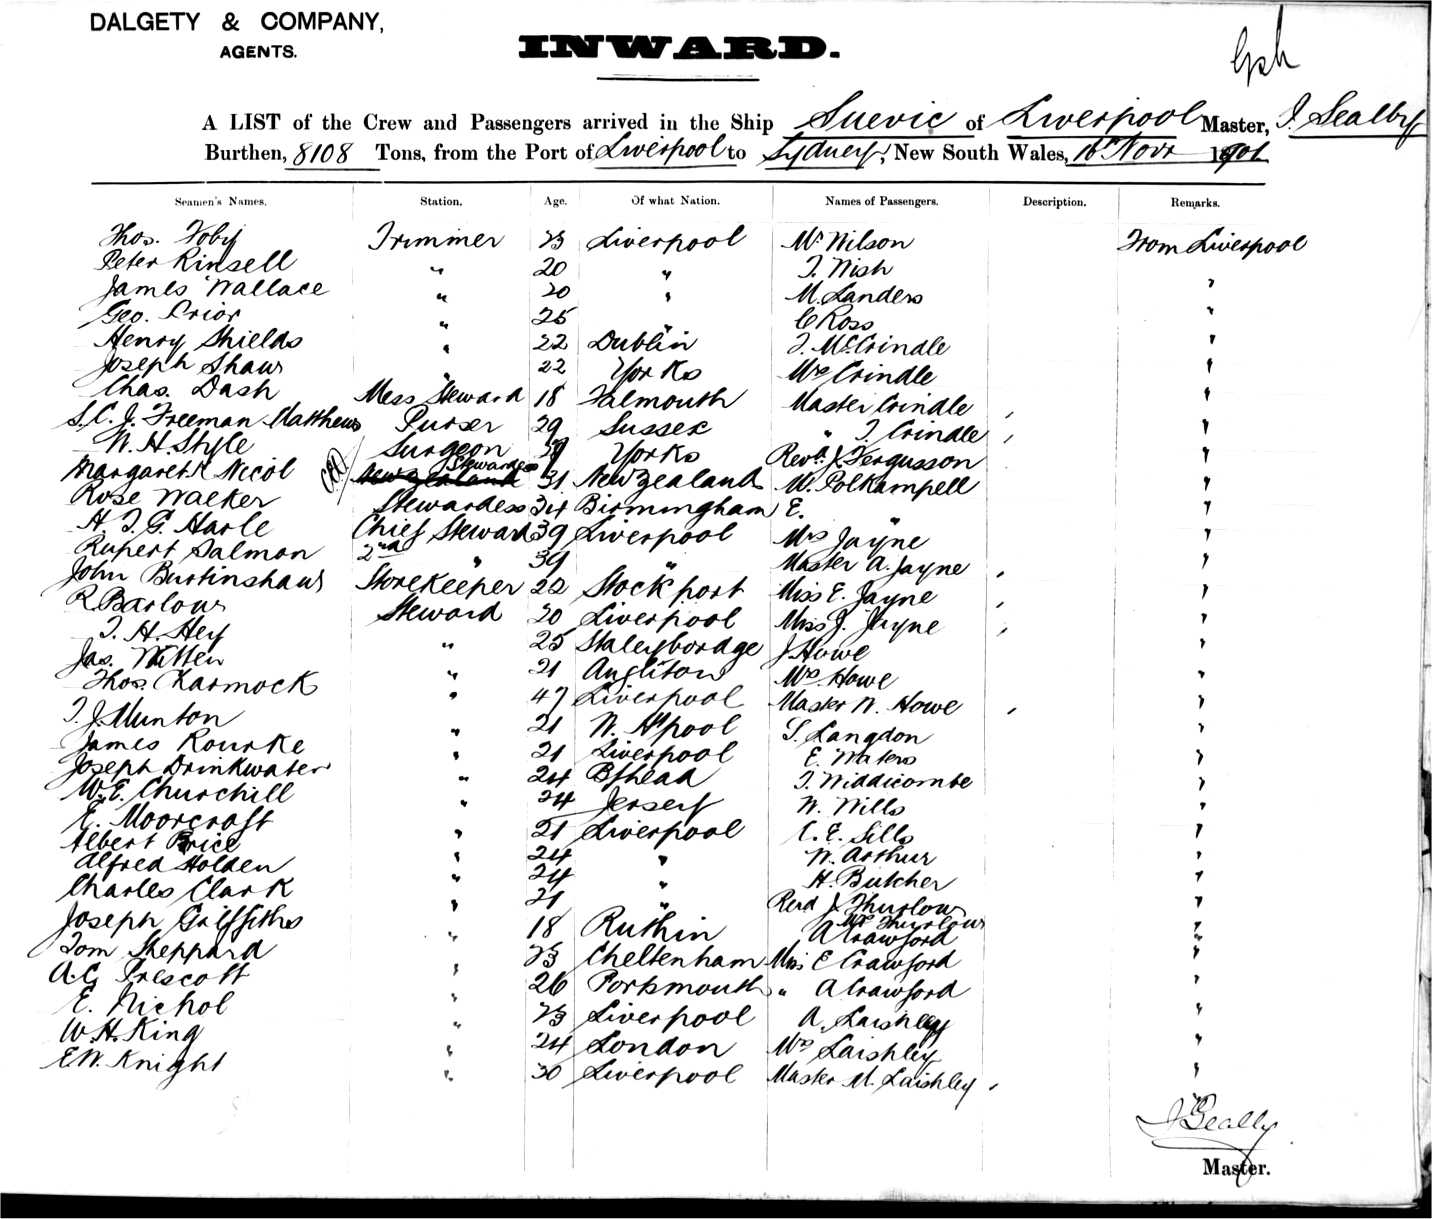 DALGETY & COMPANY,
AGENTS.
INWARD.
A LIST of the Crew and Passengers arrived in the Ship Suevic of Liverpool Master, I. Sealby
Burthen, 8108 Tons, from the Port of Liverpool to Sydney, New South Wales, 16th Novr 1901
Seamen's Names. Station. Age. Of what Nation. Names of Passengers. Description. Remarks.
Thos. Foby Trimmer 23 Liverpool Mr Wilson From Liverpool
Peter Kinsell " 20 " T. Nish "
James Wallace " 20 " M. Landers "
Geo. Prior " 25 " C Ross "
Henry Shields " 22 Dublin J. McCrindle "
Joseph Shaw " 22 Yorks Mrs Crindle "
Chas. Dash Mess Steward 18 Falmouth Master Crindle "
S.C.J. Freeman Matthews Purser 29 Sussex " J. Crindle "
W. H. Style Surgeon Yorks Revd. J. Fergusson "
Margaret Nicol Stewardess 31 New Zealand W. Polkampell "
Rose Walker Stewardess 34 Birmingham E. "
H. T. G. Harle Chief Steward 39 Liverpool Mrs Jayne "
Rupert Salmon 2nd " 39 " Master A. Jayne "
John Burtinshaw Storekeeper 22 Stockport Miss E. Jayne "
R Barlow Steward 20 Liverpool Miss J. Jayne "
T. H. Hey " 25 Staleybordge J Howe "
Jas. Witten " 21 Angliton Mrs. Howe "
Thos. Karmock " 47 Liverpool Master W. Howe "
T. J. Munton " 21 W. H'pool S. Langdon "
James Rourke " 21 Liverpool E. Waters "
Joseph Drinkwater " 24 B'head T. Widdicombe "
W. E. Churchill " 24 Jersey W. Wills "
E. Moorcroft " 21 Liverpool C. E. Sills "
Albert Price " 24 " W. Arthur "
Alfred Holden " 24 " H. Butcher "
Charles Clark " 21 " Revd J. Thurlow "
Mrs Thurlow "
Joseph Griffiths " 18 Ruthin A Crawford "
Tom Sheppard " 23 Cheltenham Miss E Crawford "
A.G. Prescott " 26 Portsmouth " A Crawford "
E. Nichol " 23 Liverpool A. Laishley "
W. H. King " 24 London Mrs Laishley "
E W. Knight " 30 Liverpool Master M. Laishley "
I Sealby
Master.